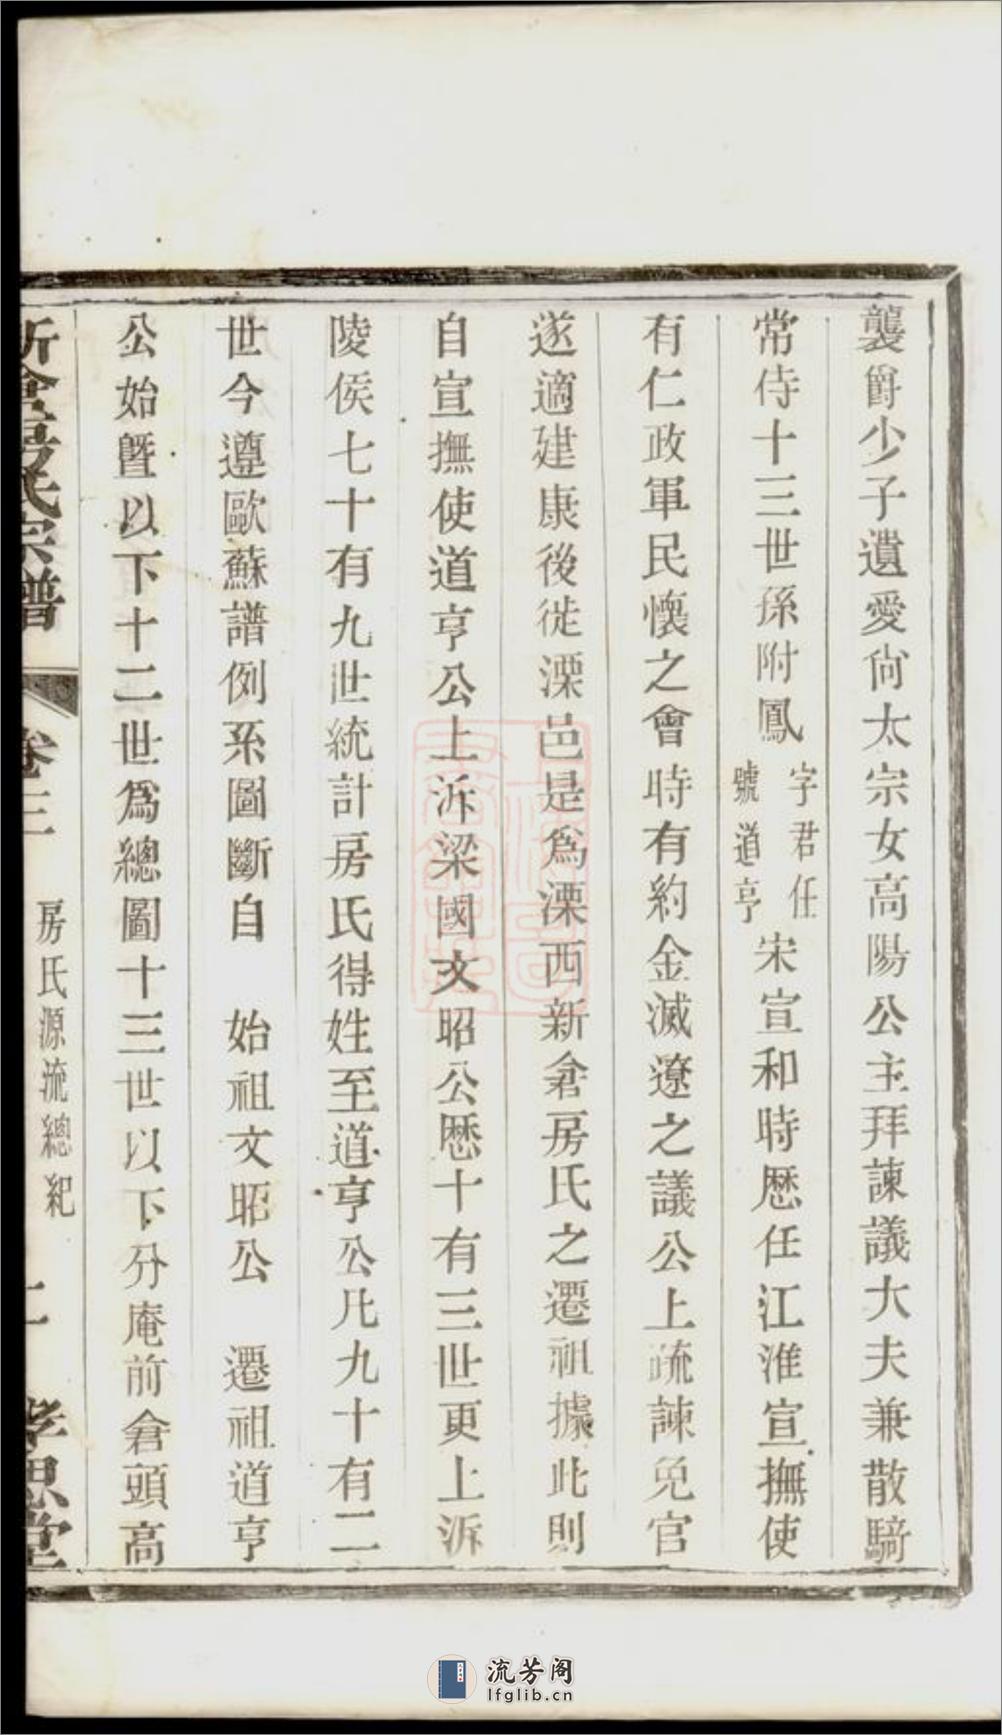 襲爵少子遺愛尙太宗女高陽公主拜諫議大夫兼散騎
常侍十三世孫附鳳字君任號道亨宋宣和時歷任江淮宣撫使
有仁政軍民懷之會時有約金滅遼之議公上疏諫免官
遂適建康後徙溧邑是爲溧西新倉房氏之遷祖據此則
自宣撫使道亨公上泝梁國文昭公歷十有三世更上泝
陵侯七十有九世統計房氏得姓至道亨公凡九十有二
世今遵歐蘇譜例系圖斷自 始祖文昭公 遷祖道亨
公始曁以下十二世爲總圖十三世以下分庵前倉頭高
新倉房氏宗譜 卷三 房氏源流總紀 孝思堂
流芳阁
lfglib.cn